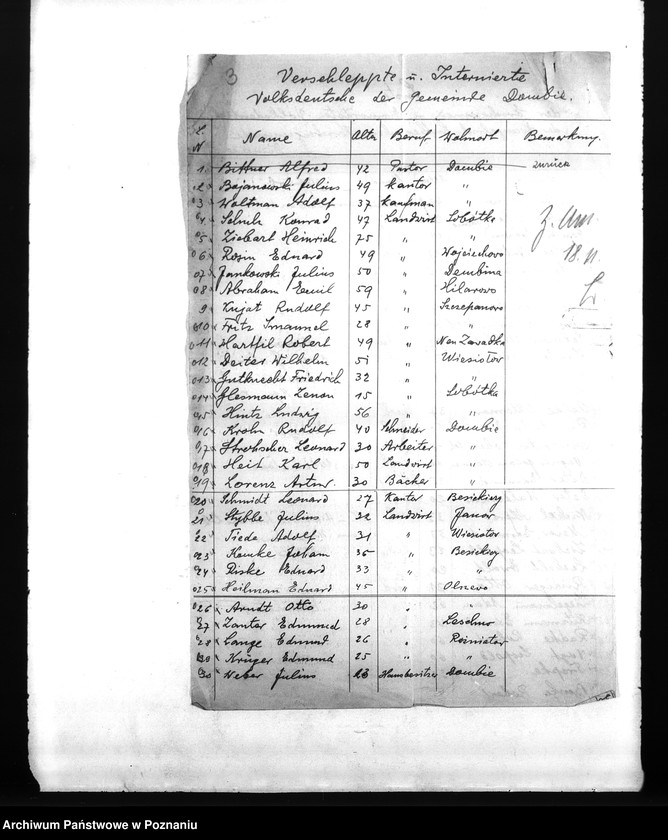 3 Verschleppte u. Internierte
Volksdeutsche der Gemeinde Dombie.
L. N Name Alter Beruf Wohnort Bemerkung.
1 Bittner Alfred 42 Pastor Dombie zurück
2 Bojanowski Julius 49 Kantor "
3 Woltman Adolf 37 Kaufman "
4 Schulz Konrad 47 Landwirt Sobótka
5 Ziebart Heinrich 75 " "
6 Rosin Eduard 49 " Wojciechowo
7 Jankowski Julius 50 " Dembina
8 Abraham Emil 59 " Hilarowo
9 Kujat Rudolf 45 " Szczepanowo
10 Fritz Emanuel 28 "
11 Hartfil Robert 49 " Neu Zawadka
12 Deiter Wilhelm 51 " Wiesiołow
13 Gutknecht Friedrich 32 " "
14 Glesmann Zenon 15 " Sobótka
15 Hintz Ludwig 56 " "
16 Krohn Rudolf 40 Schneider Dombie
17 Strohscher Leonard 30 Arbeiter "
18 Heit Karl 50 Landwirt "
19 Lorenz Artur 30 Bäcker "
20 Schmidt Leonard 27 Kantor Besiekiery
21 Stybbe Julius 32 Landwirt Janow
22 Tieda Adolf 31 " Wiesiołow
23 Kamke Johann 36 " Besiekiery
24 Riske Eduard 33 " "
25 Heilman Eduard 45 "
26 Arndt Otto 30 " "
27 Zantor Edmund 28 "
28 Lange Edmund 26 "
Krüger Edmund 25 " "
30 Weber Julius Hausbesitzer Dombie
18. II.
Archiwum Państwowe w Poznaniu